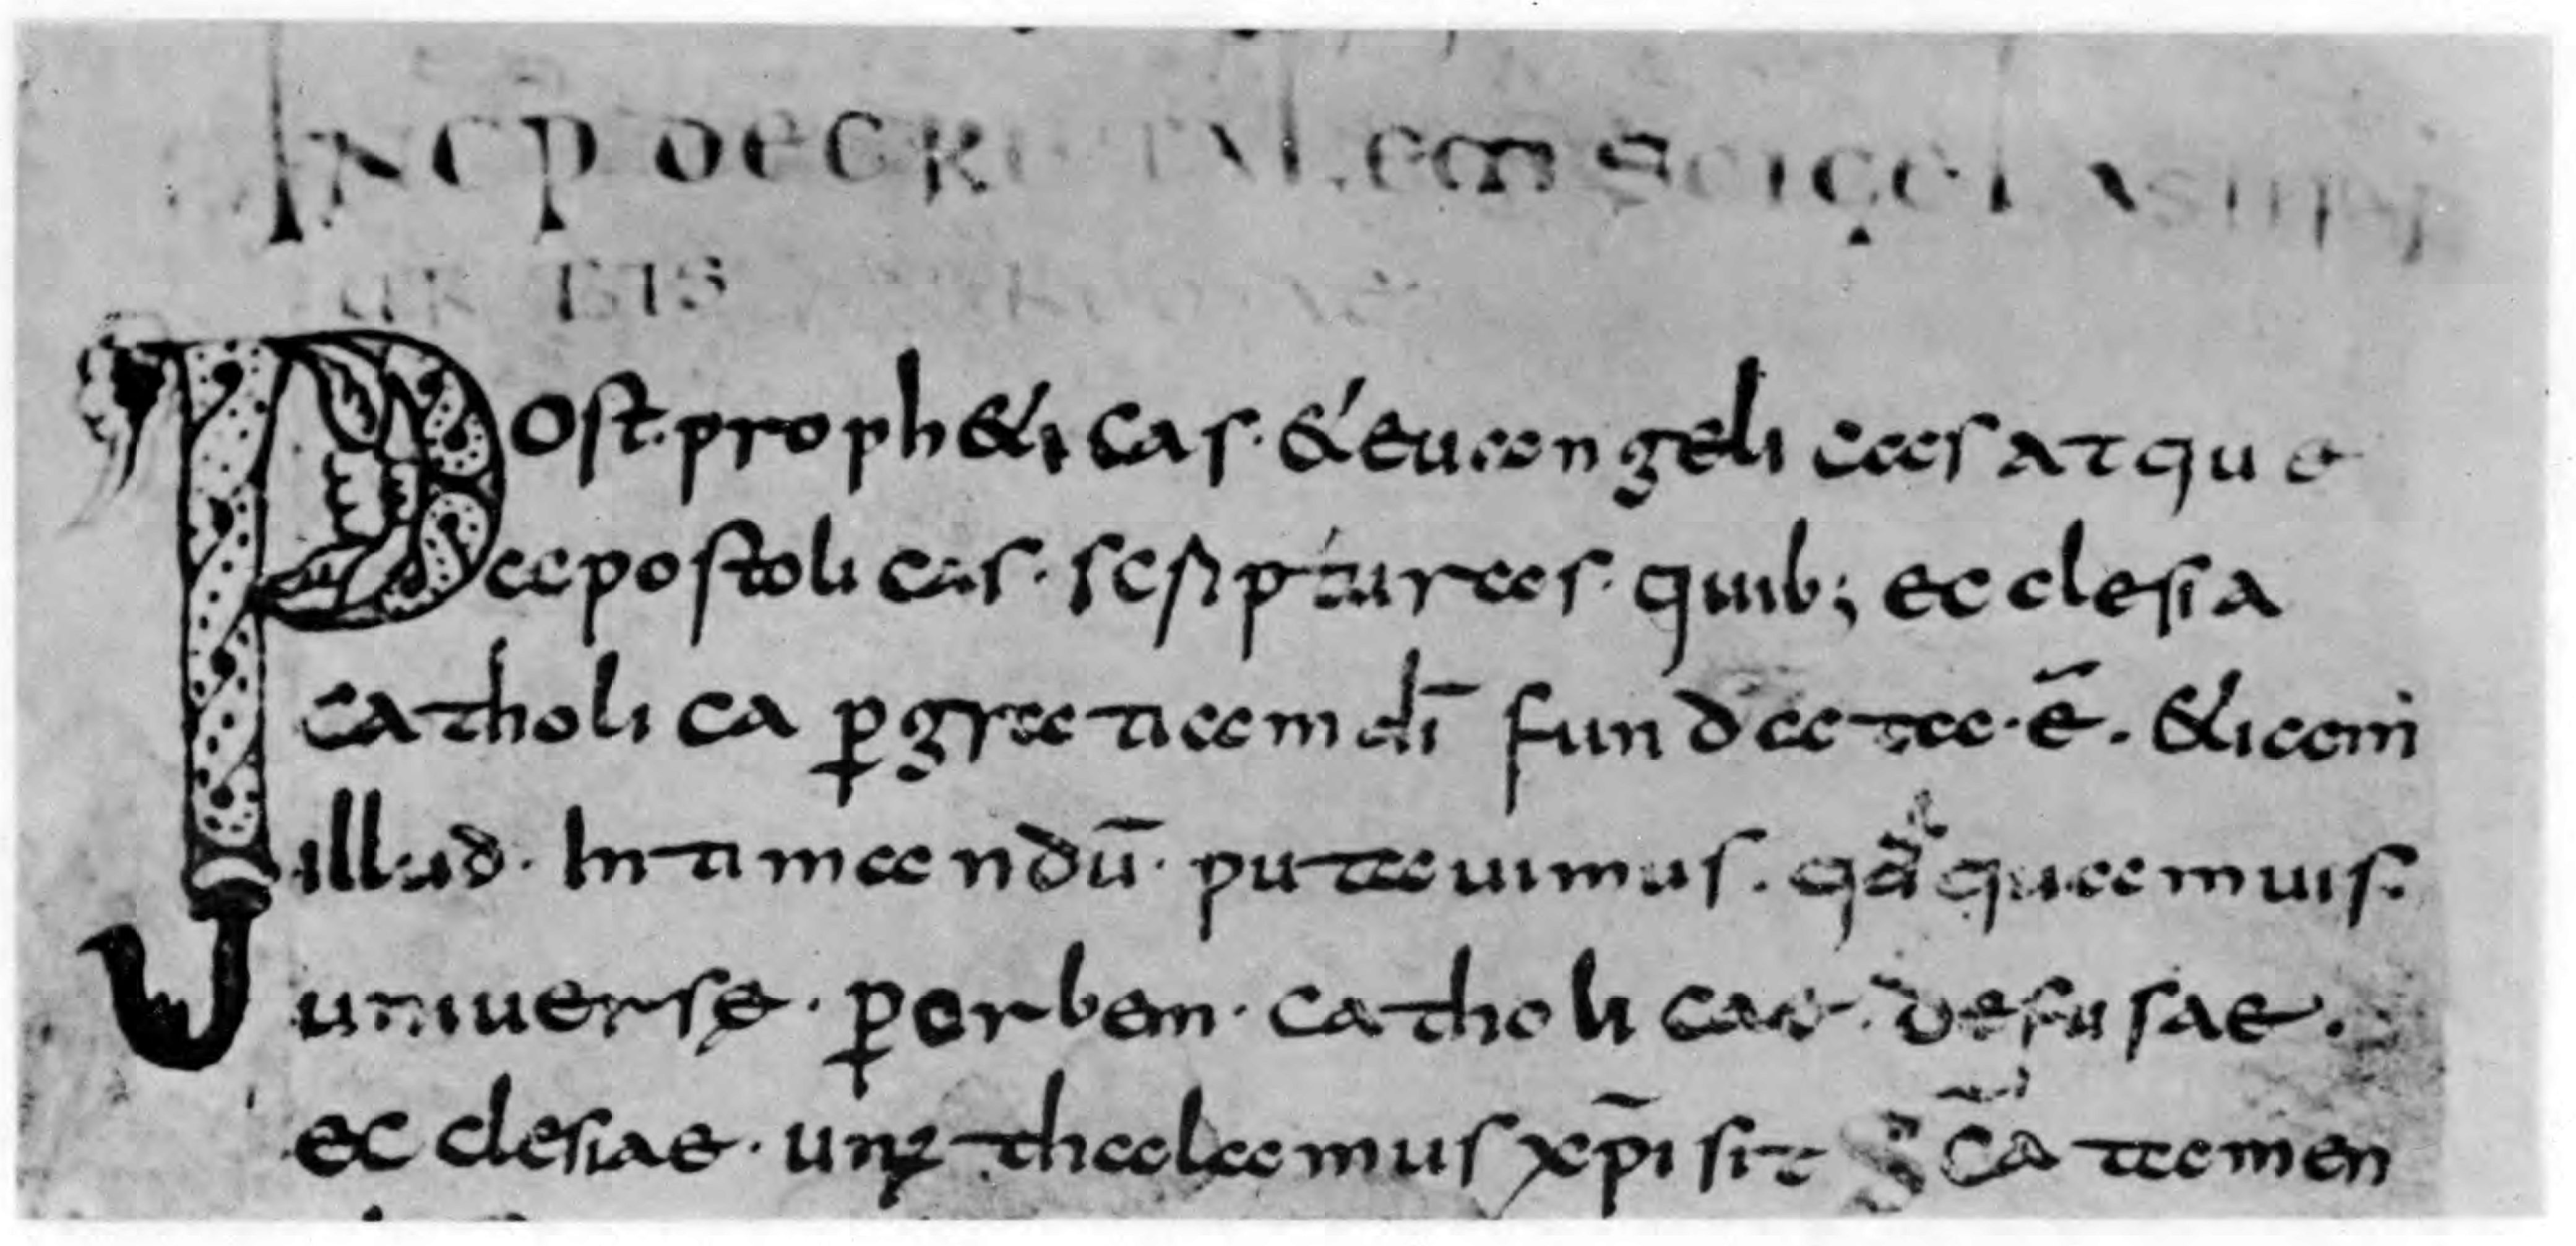 INCP DECRETALEM SCI GELASII PP
URBIS
Post. proph&icas. & euangelicas atque
apostolicas. scripturas. quib; ecclesia
catholica p gratiam dī fundata. ē. &iam
illud. Intimandū. putauimus. qđ quamuis.
uniuersę. p orbem. catholicae. defusae.
ecclesiae. unus thalamus xp̄i sit s̄ca tamen